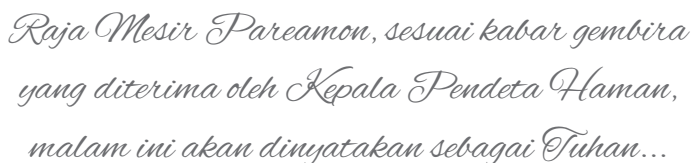 Raja Mesir Pareamon, sesuai kabar gembira
yang diterima oleh Kepala Pendeta Haman,
malam ini akan dinyatakan sebagai Tuhan...